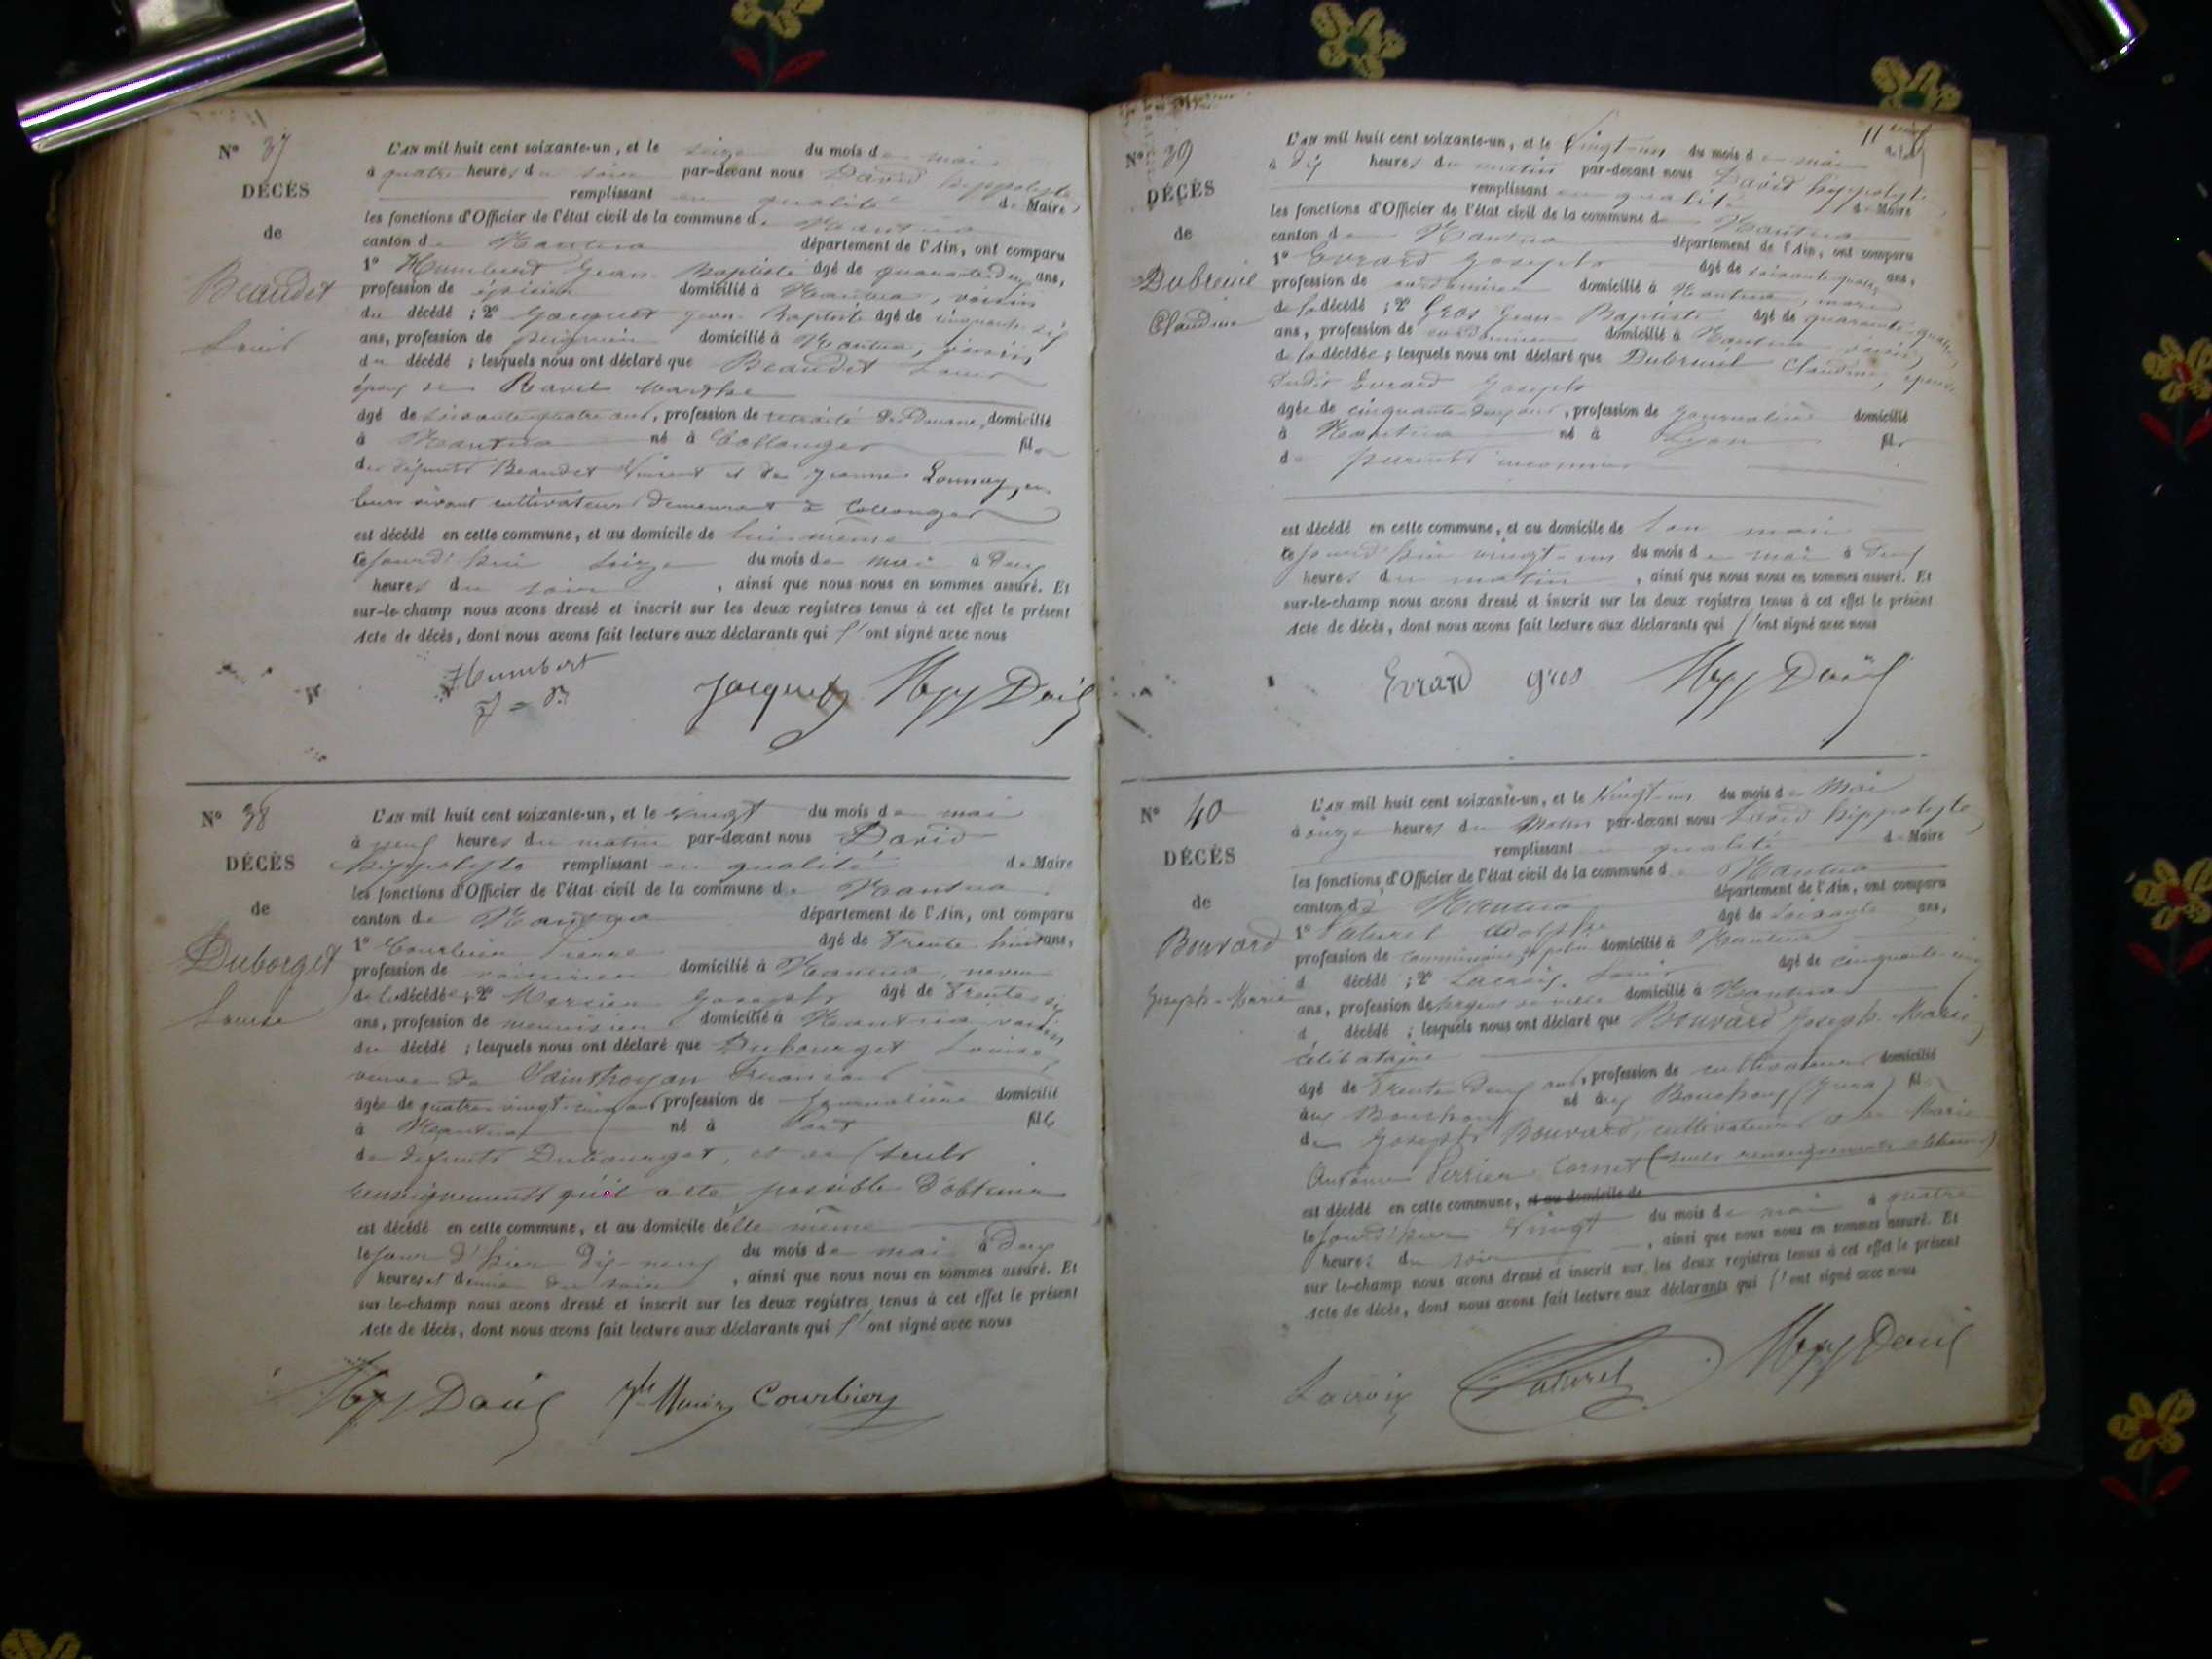 N° 37
DÉCÈS
de
Beaudet
Louis
L'AN mil huit cent soixante-un, et le seize du mois de mai
à quatre heures du soir par-devant nous David hippolyte
remplissant en qualité de Maire,
les fonctions d'Officier de l'état civil de la commune de Nantua
canton de Nantua département de l'Ain, ont comparu
1° Humbert Jean Baptiste âgé de quarante deux ans,
profession de épicier domicilié à Nantua, voisin
du décédé ; 2° Jacquet Jean Baptiste âgé de cinquante
ans, profession de domicilié à Nantua, voisin
du décédé ; lesquels nous ont déclaré que Beaudet Louis
époux de Ravet Marthe
âgé de soixante quatre ans, profession de retraité des Douanes, domicilié
à Nantua né à Collonges fils
des défunts Beaudet Vincent et de Jeanne Lounay, en
leur vivant cultivateurs demeurant à Collonges
est décédé en cette commune, et au domicile de lui même
cejourd'hui seize du mois de mai à deux
heures du soir, ainsi que nous nous en sommes assuré. Et
sur-le-champ nous avons dressé et inscrit sur les deux registres tenus à cet effet le présent
Acte de décès, dont nous avons fait lecture aux déclarants qui l'ont signé avec nous
Humbert
J = B
Jacquet Hyp David
N° 38
DÉCÈS
de
Duborget
Louise
L'AN mil huit cent soixante-un, et le vingt du mois de mai
à neuf heures du matin par-devant nous David
hippolyte remplissant en qualité de Maire
les fonctions d'Officier de l'état civil de la commune de Nantua
canton de Nantua département de l'Ain, ont comparu
1° Pierre âgé de trente huit ans,
profession de domicilié à Nantua, neveu
de la décédée ; 2° Mercier Joseph âgé de trente six
ans, profession de menuisier domicilié à Nantua voisin
du décédé ; lesquels nous ont déclaré que Dubourget Louise,
veuve de Sainthoyan François
âgée de quatre-vingt-cinq ans profession de Journalière domicilié
à Nantua né à Port fille
de défunts Dubourget, et de (seuls
renseignements qu'il a été possible d'obtenir
est décédé en cette commune, et au domicile d'elle même
le jour d'hier dix-neuf du mois de mai à deux
heures et demie du soir, ainsi que nous nous en sommes assuré. Et
sur-le-champ nous avons dressé et inscrit sur les deux registres tenus à cet effet le présent
Acte de décès, dont nous avons fait lecture aux déclarants qui l'ont signé avec nous
Hyp David Courbiery
N° 39
DÉCÈS
de
Dubreuil
Claudine
L'AN mil huit cent soixante-un, et le Vingt-un du mois de mai
à dix heures du matin par-devant nous David hippolyte
remplissant en qualité de Maire
les fonctions d'Officier de l'état civil de la commune de Nantua
canton de Nantua département de l'Ain, ont comparu
1° Evrard Joseph âgé de soixante quatre ans,
profession de cordonnier domicilié à Nantua, mari
de la décédé ; 2° Gros Jean Baptiste âgé de quarante-quatre
ans, profession de cordonnier domicilié à Nantua voisin
de la décédée ; lesquels nous ont déclaré que Dubreuil Claudine, épouse
dudit Evrard Joseph
âgée de cinquante-deux ans, profession de Journalière domicilié
à Nantua né à Lyon fille
de parents inconnus
est décédé en cette commune, et au domicile de son mari
cejourd'hui vingt-un du mois de mai à deux
heures du matin, ainsi que nous nous en sommes assuré. Et
sur-le-champ nous avons dressé et inscrit sur les deux registres tenus à cet effet le présent
Acte de décès, dont nous avons fait lecture aux déclarants qui l'ont signé avec nous
Evrard gros Hyp David
N° 40
DÉCÈS
de
Bouvard
Joseph-Marie
L'AN mil huit cent soixante-un, et le Vingt-un du mois de Mai
à onze heures du Matin par-devant nous David hippolyte
remplissant en qualité de Maire
les fonctions d'Officier de l'état civil de la commune de Nantua
canton de Nantua département de l'Ain, ont comparu
1° Paturel Adolphe âgé de soixante ans,
profession de commissaire de police domicilié à Nantua
d décédé ; 2° Lacroix Louis âgé de cinquante-cinq
ans, profession de sergent de ville domicilié à Nantua
d décédé ; lesquels nous ont déclaré que Bouvard Joseph Marie,
célibataire
âgé de trente deux ans, profession de cultivateur domicilié
aux Bouchoux né aux Bouchoux (Jura) fils
de Joseph Bouvard, cultivateur et de Marie
Antoine Perrier Cornet (seuls renseignements obtenus)
est décédé en cette commune, et au domicile de
le jour d'hier Vingt du mois de mai à quatre
heures du soir, ainsi que nous nous en sommes assuré. Et
sur le-champ nous avons dressé et inscrit sur les deux registres tenus à cet effet le présent
Acte de décès, dont nous avons fait lecture aux déclarants qui l'ont signé avec nous
Lacroix Paturel Hyp David